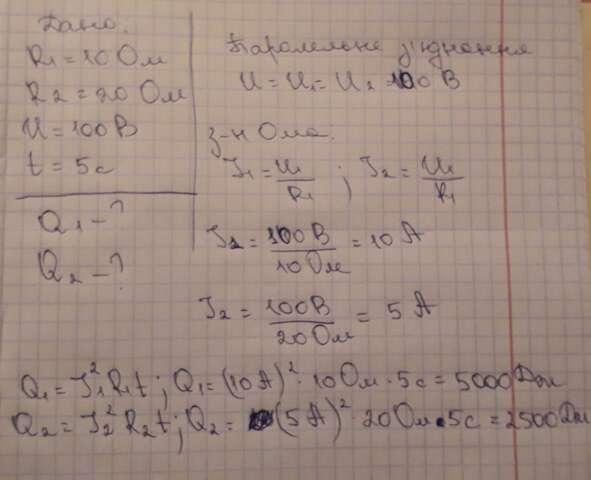 Дано:
R₁ = 10 Ом
R₂ = 20 Ом
U = 100 В
t = 5 с
Q₁ - ?
Q₂ - ?
Паралельне з'єднання
U = U₁ = U₂ = 100 В
З-н Ома:
I₁ = U₁/R₁ ; I₂ = U₁/R₁
I₁ = 100 В/10 Ом = 10 А
I₂ = 100 В/20 Ом = 5 А
Q₁ = I₁² R₁ t ; Q₁ = (10 А)² · 10 Ом · 5 с = 5000 Дж
Q₂ = I₂² R₂ t ; Q₂ = (5 А)² 20 Ом · 5 с = 2500 Дж